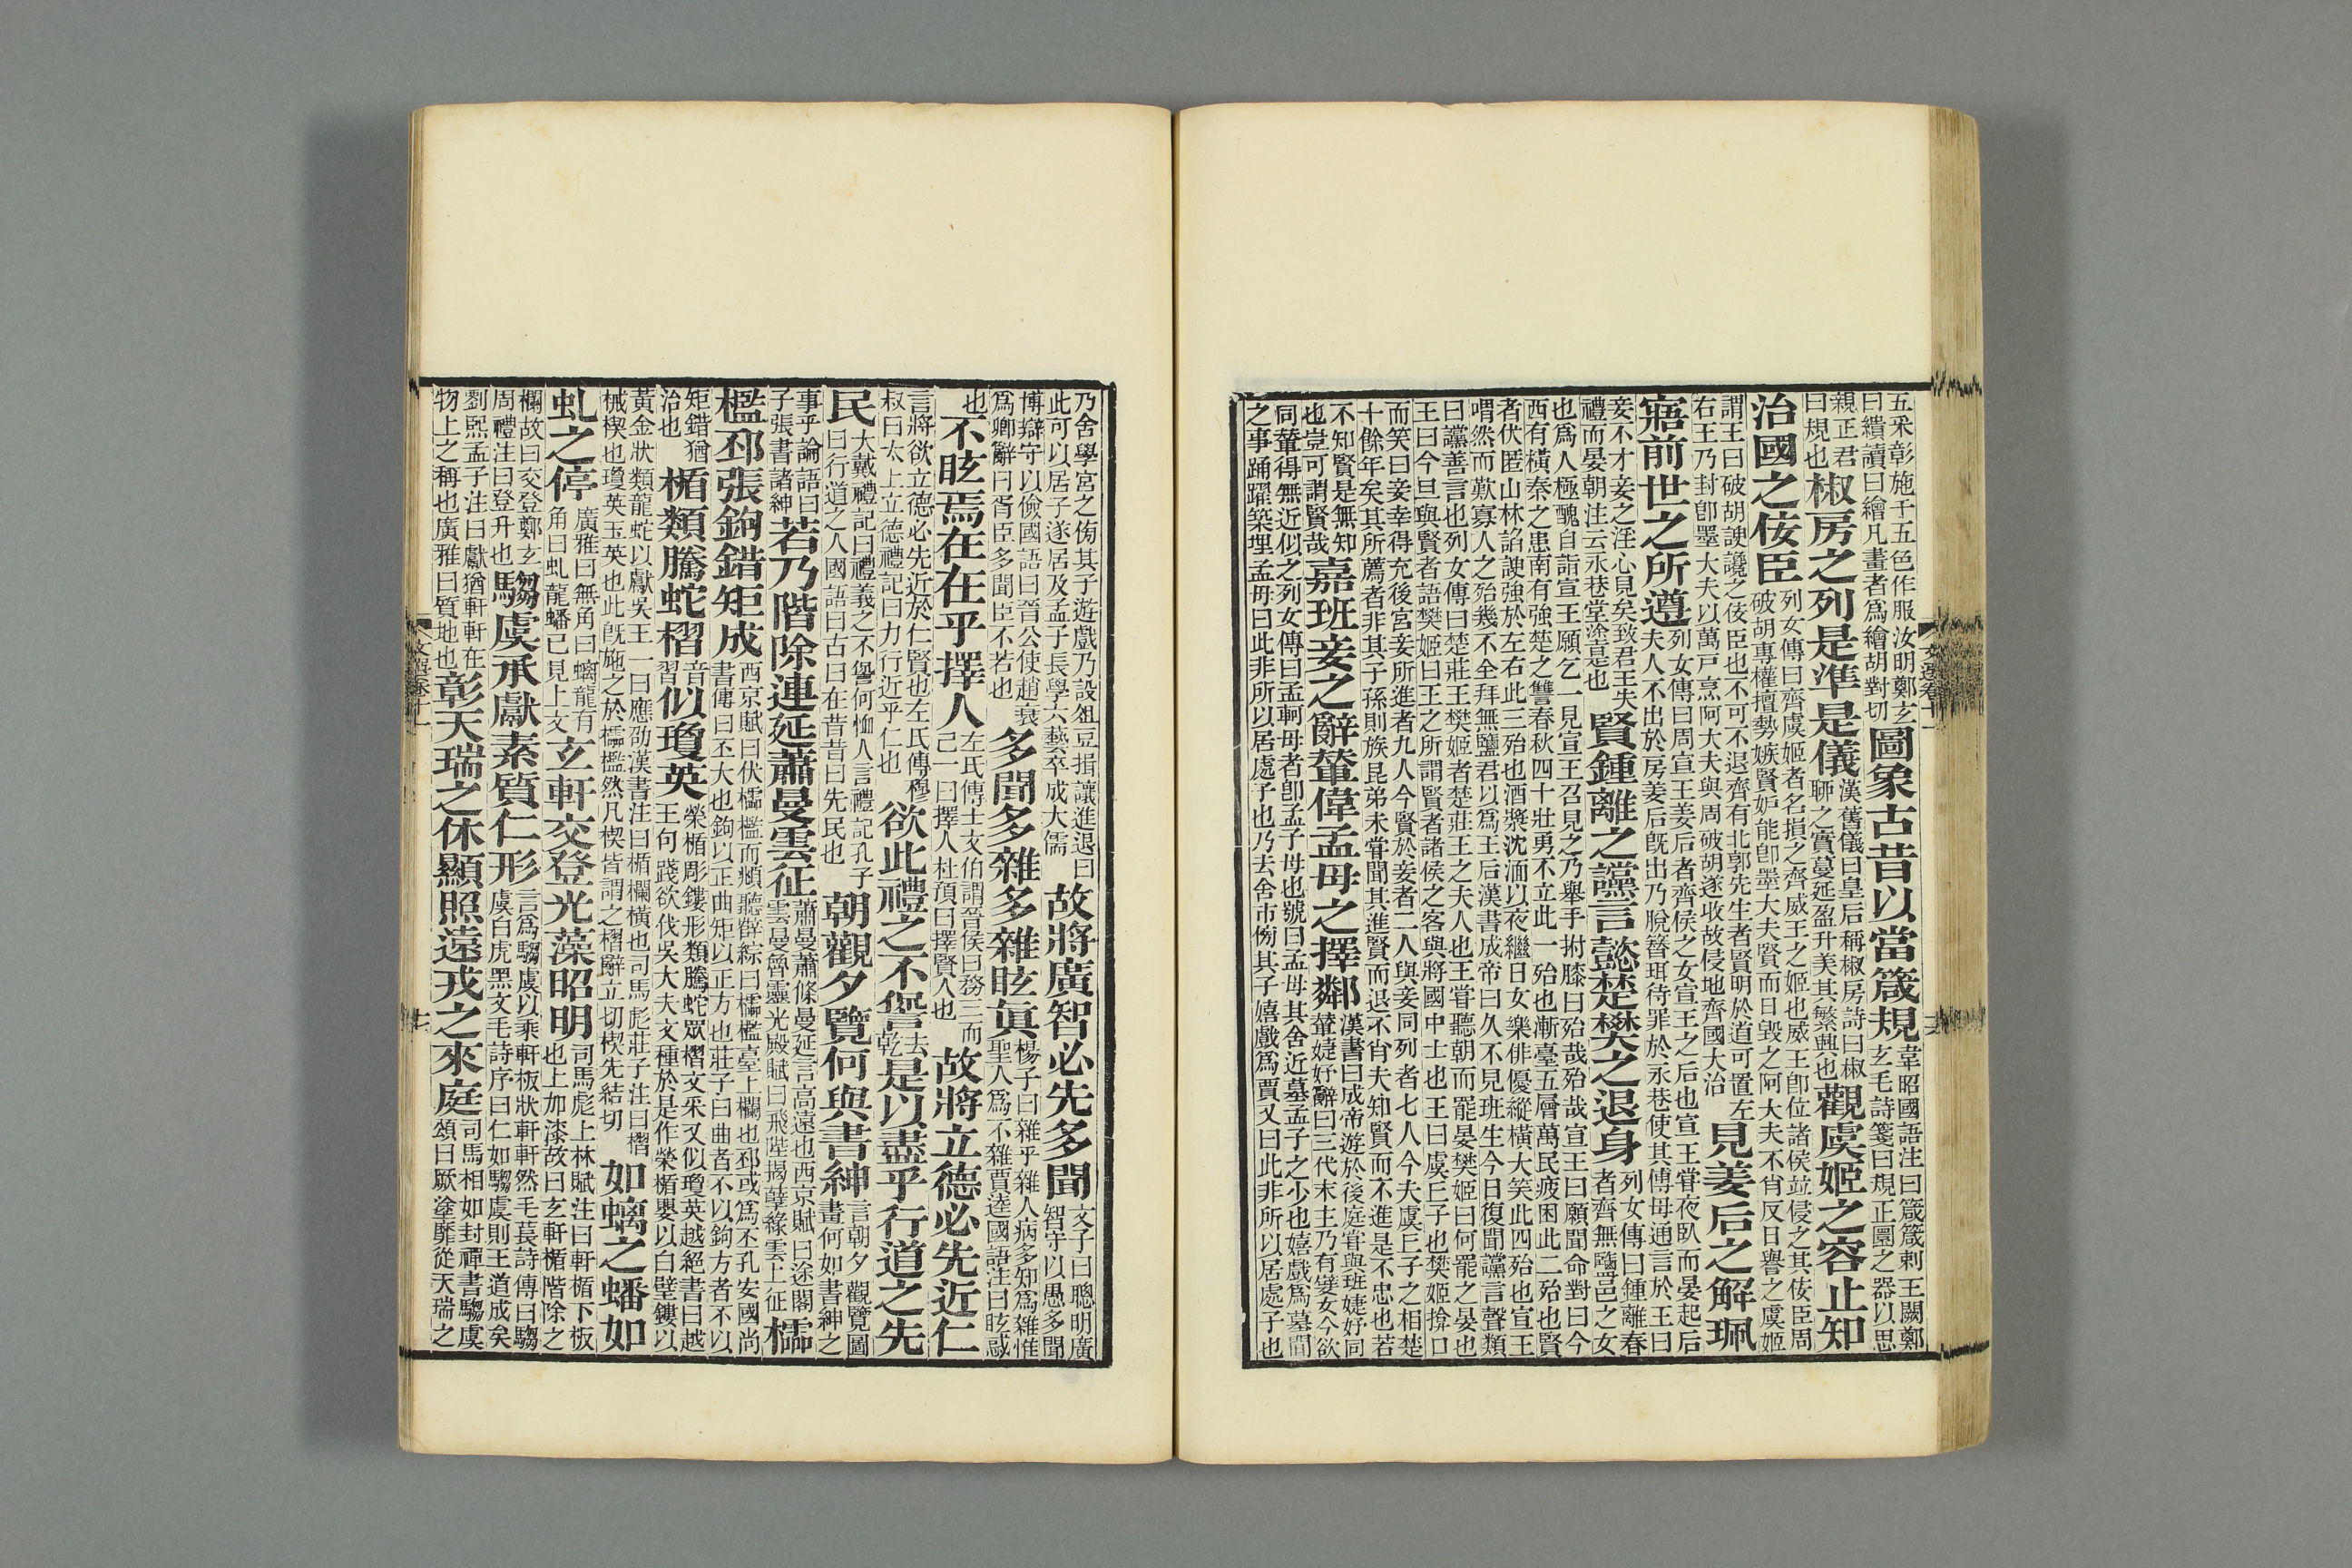 五采彰施于五色作服汝明鄭玄曰繢讀曰繪凡畫者爲繪胡對切圖象古昔以當箴規韋昭國語注曰箴箴刺王闕鄭玄毛詩箋曰規正圓之器以思
親正君曰規也椒房之列是準是儀漢舊儀曰皇后稱椒房詩曰椒聊之實蔓延盈升美其繁興也觀虞姬之容止知
治國之佞臣列女傳曰齊虞姬者名損之齊威王之姬也威王卽位諸侯竝侵之其佞臣周破胡專權擅勢嫉賢妒能卽墨大夫賢而日毀之阿大夫不肖反日譽之虞姬
謂王曰破胡諛讒之佞臣也不可不退齊有北郭先生者賢明於道可置左右王乃封卽墨大夫以萬戸烹阿大夫與周破胡遂收故侵地齊國大治見姜后之解珮
寤前世之所遵列女傳曰周宣王姜后者齊侯之女宣王之后也宣王甞夜臥而晏起后夫人不出於房姜后旣出乃脫簪珥待罪於永巷使其傅母通言於王曰
妾不才妾之淫心見矣致君王失禮而晏朝注云永巷堂塗是也賢鍾離之讜言懿楚樊之退身列女傳曰鍾離春者齊無鹽邑之女
也爲人極醜自詣宣王願乞一見宣王召見之乃舉手拊膝曰殆哉殆哉宣王曰願聞命對曰今
西有橫秦之患南有強楚之讐春秋四十壯勇不立此一殆也漸臺五層萬民疲困此二殆也賢
者伏匿山林諂諛強於左右此三殆也酒漿沈湎以夜繼日女樂俳優縱橫大笑此四殆也宣王
喟然而歎寡人之殆幾不全拜無鹽君以爲王后漢書成帝曰久不見班生今日復聞讜言聲類
曰讜善言也列女傳曰楚莊王樊姬者楚莊王之夫人也王甞聽朝而罷晏樊姬曰何罷之晏也
王曰今旦與賢者語樊姬曰王之所謂賢者諸侯之客與將國中士也王曰虞丘子也樊姬揜口
而笑曰妾幸得充後宮妾所進者九人今賢於妾者二人與妾同列者七人今夫虞丘子之相楚
十餘年矣其所薦者非其子孫則族昆弟未甞聞其進賢而退不肖夫知賢而不進是不忠也若
不知賢是無知也豈可謂賢哉嘉班妾之辭輦偉孟母之擇鄰漢書曰成帝遊於後庭甞與班婕妤同輦婕妤辭曰三代末主乃有嬖女今欲
同輦得無近似之列女傳曰孟軻母者卽孟子母也號曰孟母其舍近墓孟子之少也嬉戲爲墓間
之事踊躍築埋孟母曰此非所以居處子也乃去舍市傍其子嬉戲爲賈又曰此非所以居處子也
乃舍學宮之傍其子遊戲乃設俎豆揖讓進退曰此可以居子遂居及孟子長學六藝卒成大儒故將廣智必先多聞文子曰聰明廣智守以愚多聞
博辯守以儉國語曰晉公使趙衰爲卿辭曰胥臣多聞臣不若也多聞多雜多雜眩眞楊子曰雜乎雜人病多知爲雜惟聖人爲不雜賈逵國語注曰眩惑
也不眩焉在在乎擇人左氏傳士文伯謂晉侯曰務三而已一曰擇人杜預曰擇賢人也故將立德必先近仁
言將欲立德必先近於仁賢也左氏傳穆叔曰太上立德禮記曰力行近乎仁也欲此禮之不諐去乾是以盡乎行道之先
民大戴禮記曰禮義之不諐何恤人言禮記孔子曰行道之人國語曰古曰在昔昔曰先民也朝觀夕覽何與書紳言朝夕觀覽圖畫何如書紳之
事乎論語曰子張書諸紳若乃階除連延蕭曼雲征蕭曼蕭條曼延言高遠也西京賦曰途閣雲曼魯靈光殿賦曰飛陛揭孽緣雲上征櫺
檻邳張鉤錯矩成西京賦曰伏櫺檻而頫聽薛綜曰櫺檻臺上欄也邳或爲丕孔安國尚書傳曰丕大也鉤以正曲矩以正方也莊子曰曲者不以鉤方者不以
矩錯猶治也楯類騰蛇槢習音似瓊英榮楯彫鏤形類騰蛇眾槢文采又似瓊英越絕書曰越王句踐欲伐吳大夫文種於是作榮楯嬰以白璧鏤以
黃金狀類龍蛇以獻吳王一曰應劭漢書注曰楯欄橫也司馬彪莊子注曰槢械楔也瓊英玉英也此旣施之於櫺檻然凡楔皆謂之槢辭立切楔先結切如螭之蟠如
虬之停廣雅曰無角曰螭龍有角曰虬龍蟠已見上文玄軒交登光藻昭明司馬彪上林賦注曰軒楯下板也上加漆故曰玄軒楯階除之
欄故曰交登鄭玄周禮注曰登升也騶虞承獻素質仁形言爲騶虞以乘軒板狀軒軒然毛萇詩傳曰騶虞白虎黑文毛詩序曰仁如騶虞則王道成矣
劉熙孟子注曰獻猶軒軒在物上之稱也廣雅曰質地也彰天瑞之休顯照遠戎之來庭司馬相如封禪書騶虞頌曰厥塗靡從天瑞之